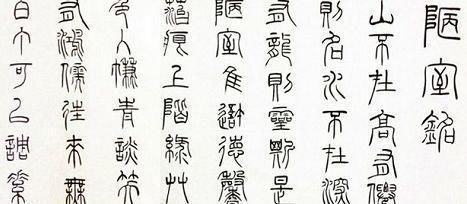 陋室銘
山不在高有僊
則名水不在深
有龍則靈斯是
陋室惟吾德馨
苔痕上階綠艸
色入簾青談笑
有鴻儒往來無
白丁可以調素